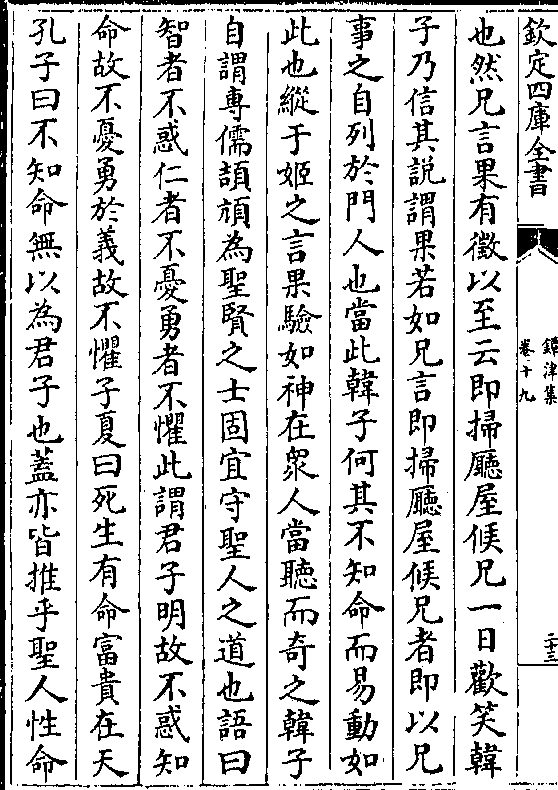 欽定四庫全書
鐔津集
卷十九
二十三
也然兄言果有徵以至云即掃廳屋候兄一日歡笑韓
子乃信其説謂果若如兄言即掃廳屋候兄者即以兄
事之自列於門人也當此韓子何其不知命而易動如
此也縱于姬之言果驗如神在衆人當聽而奇之韓子
自謂專儒頡頏為聖賢之士固宜守聖人之道也語曰
智者不惑仁者不憂勇者不懼此謂君子明故不惑知
命故不憂勇於義故不懼子夏曰死生有命富貴在天
孔子曰不知命無以為君子也蓋亦皆推乎聖人性命